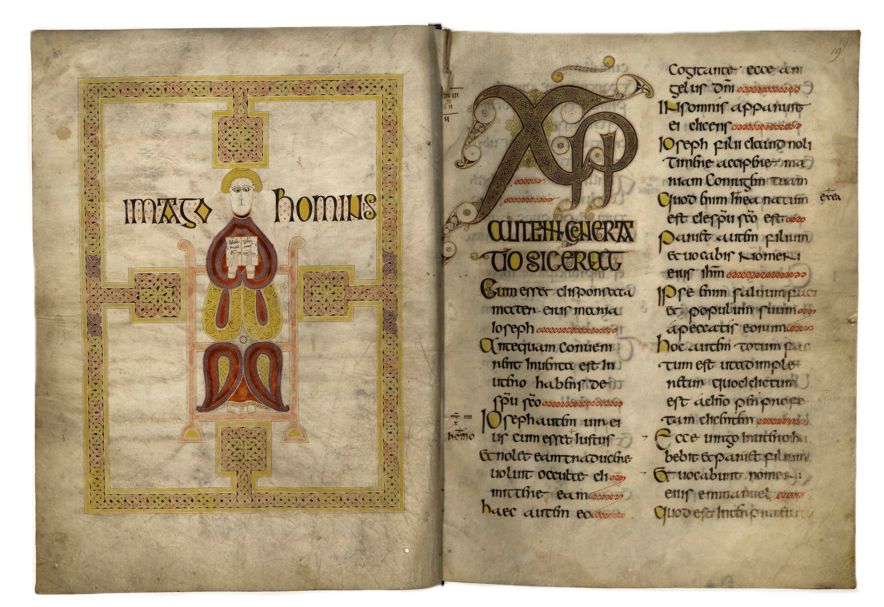 imago hominis
XPI
autem genera
tio sic erat
Cum esset disponsata
mater eius maria
Ioseph
Antequam conueni
rent inuenta est in
utero habens de
spu sco
Ioseph autem uir ei
us cum esset iustus
Et nollet eam traducere
uoluit occulte di
mittere eam
haec autem eo
homo
19
Cogitante ecce an
gelus dni
In somnis apparuit
ei dicens
Ioseph filii dauid noli
timere accipere ma
riam coniugem tuam
Quod enim in ea natum
est de spu sco est
Pariet autem filium
et uocabis nomen
eius ihm
Ipse enim saluum faci
et populum suum
a peccatis eorum
hoc autem totum fac
tum est ut adimple
retur quod dictum
est a dno per profe
tam dicentem
Ecce uirgo in utero ha
bebit et pariet filium
Et uocabunt nomen
eius emmanuel
Quod est interpraetatum